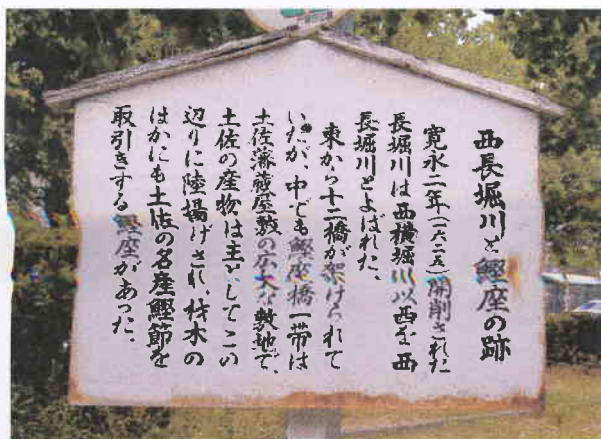 西長堀川と鰹座の跡
寛永二年(一六二五)開削された
長堀川は西横堀川以西を西
長堀川とよばれた、
東から十二橋が架けられて
いたが、中でも鰹座橋一帯は
土佐藩蔵屋敷の広大な敷地で、
土佐の産物は主としてこの
辺りに陸揚げされ、材木の
ほかにも土佐の名産鰹節を
取引きする鰹座があった、